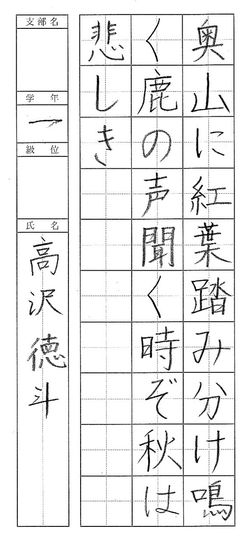 奥山に紅葉踏み分け鳴
く鹿の声聞く時ぞ秋は
悲しき
支部名
学年
一
級位
氏名
高沢徳斗